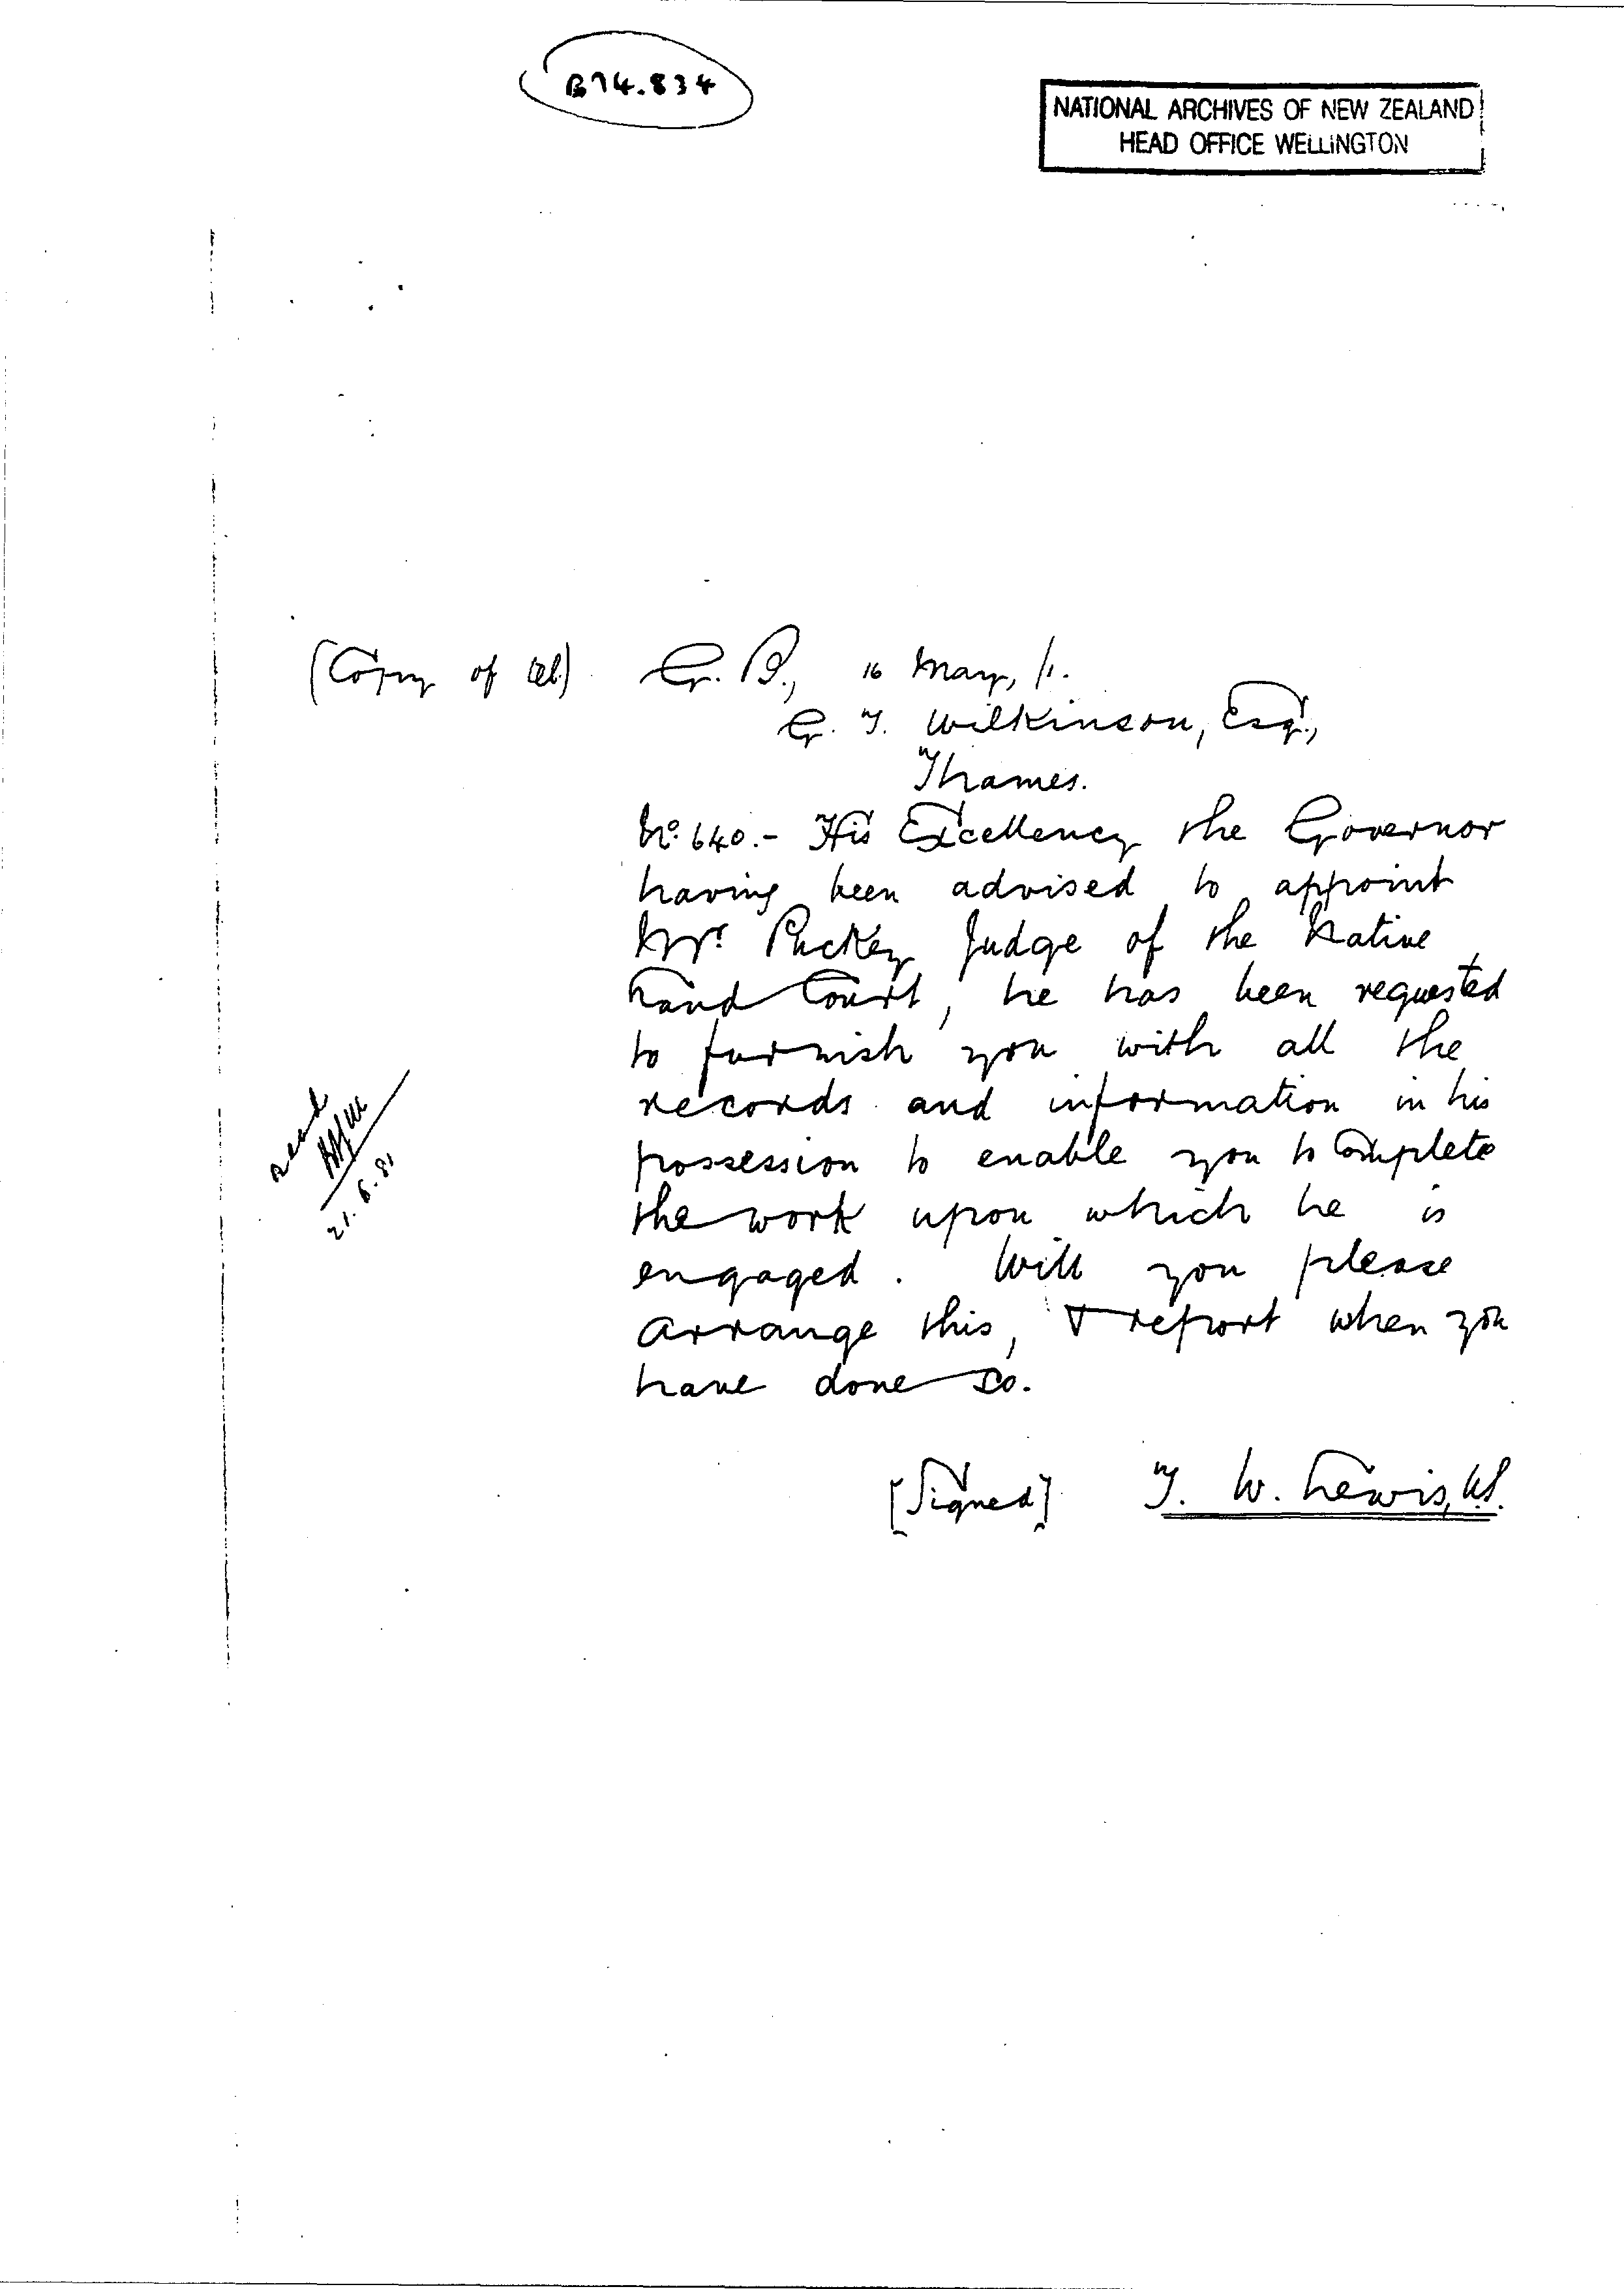 B74.834
NATIONAL ARCHIVES OF NEW ZEALAND
HEAD OFFICE WELLINGTON
(Copy of tel.) G. B., 16 May, /1.
G. T. Wilkinson, Esq.,
Thames.
No. 640.- His Excellency the Governor
having been advised to appoint
Mr. Puckey Judge of the Native
Land Court, he has been requested
to furnish you with all the
records and information in his
possession to enable you to complete
the work upon which he is
engaged. Will you please
arrange this, & report when you
have done so.
[Signed] T. W. Lewis, U.S.
read
21.6.81